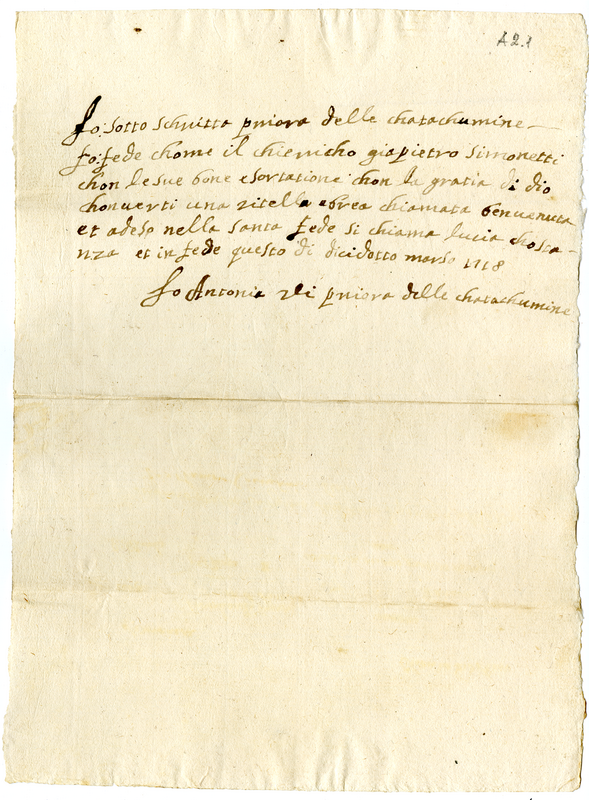 A2.1
Io sotto schritta priora delle chatachumine
fo fede chome il chierricho giapietro Simonetti
chon le sue bone esortatione chon la gratia di dio
chonverti una zitella ebrea chiamata benvenuta
et adeso nella santa fede si chiama lucia chosta-
nza et in fede questo di dicidotto marso 1718
Io Antonia priora delle chatachumine